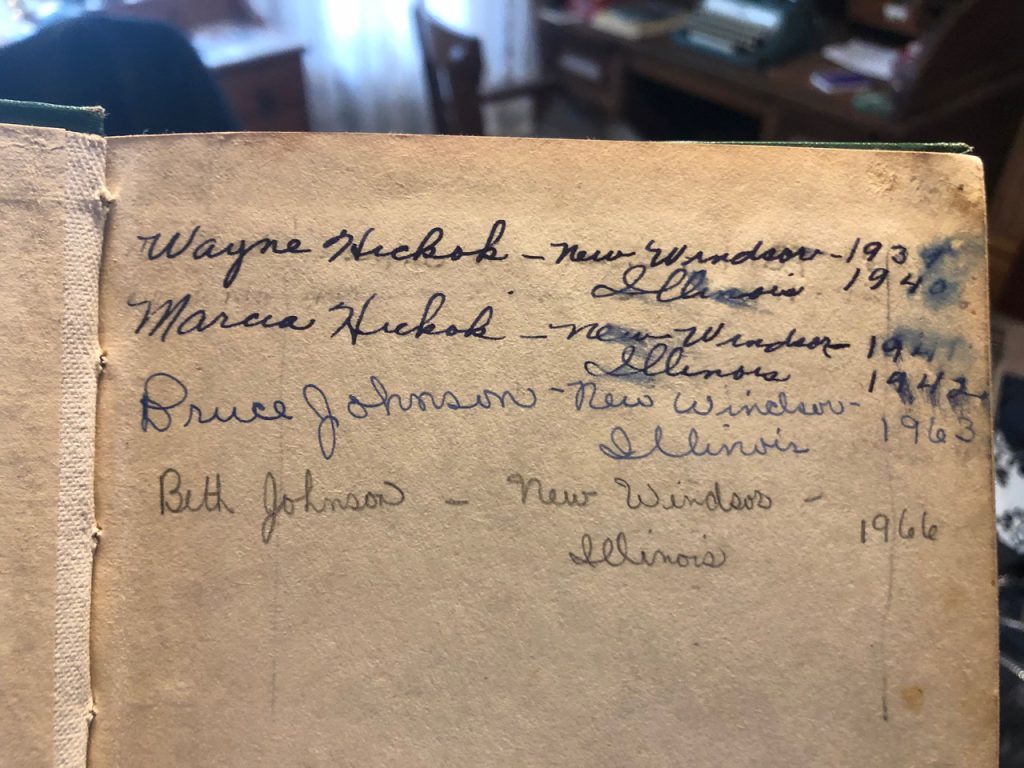 Wayne Hickok - New Windsor - 193
Illinois 1940
Marcia Hickok - New Windsor 1941
Illinois 1942
Bruce Johnson - New Windsor -
Illinois 1963
Beth Johnson - New Windsor -
Illinois 1966